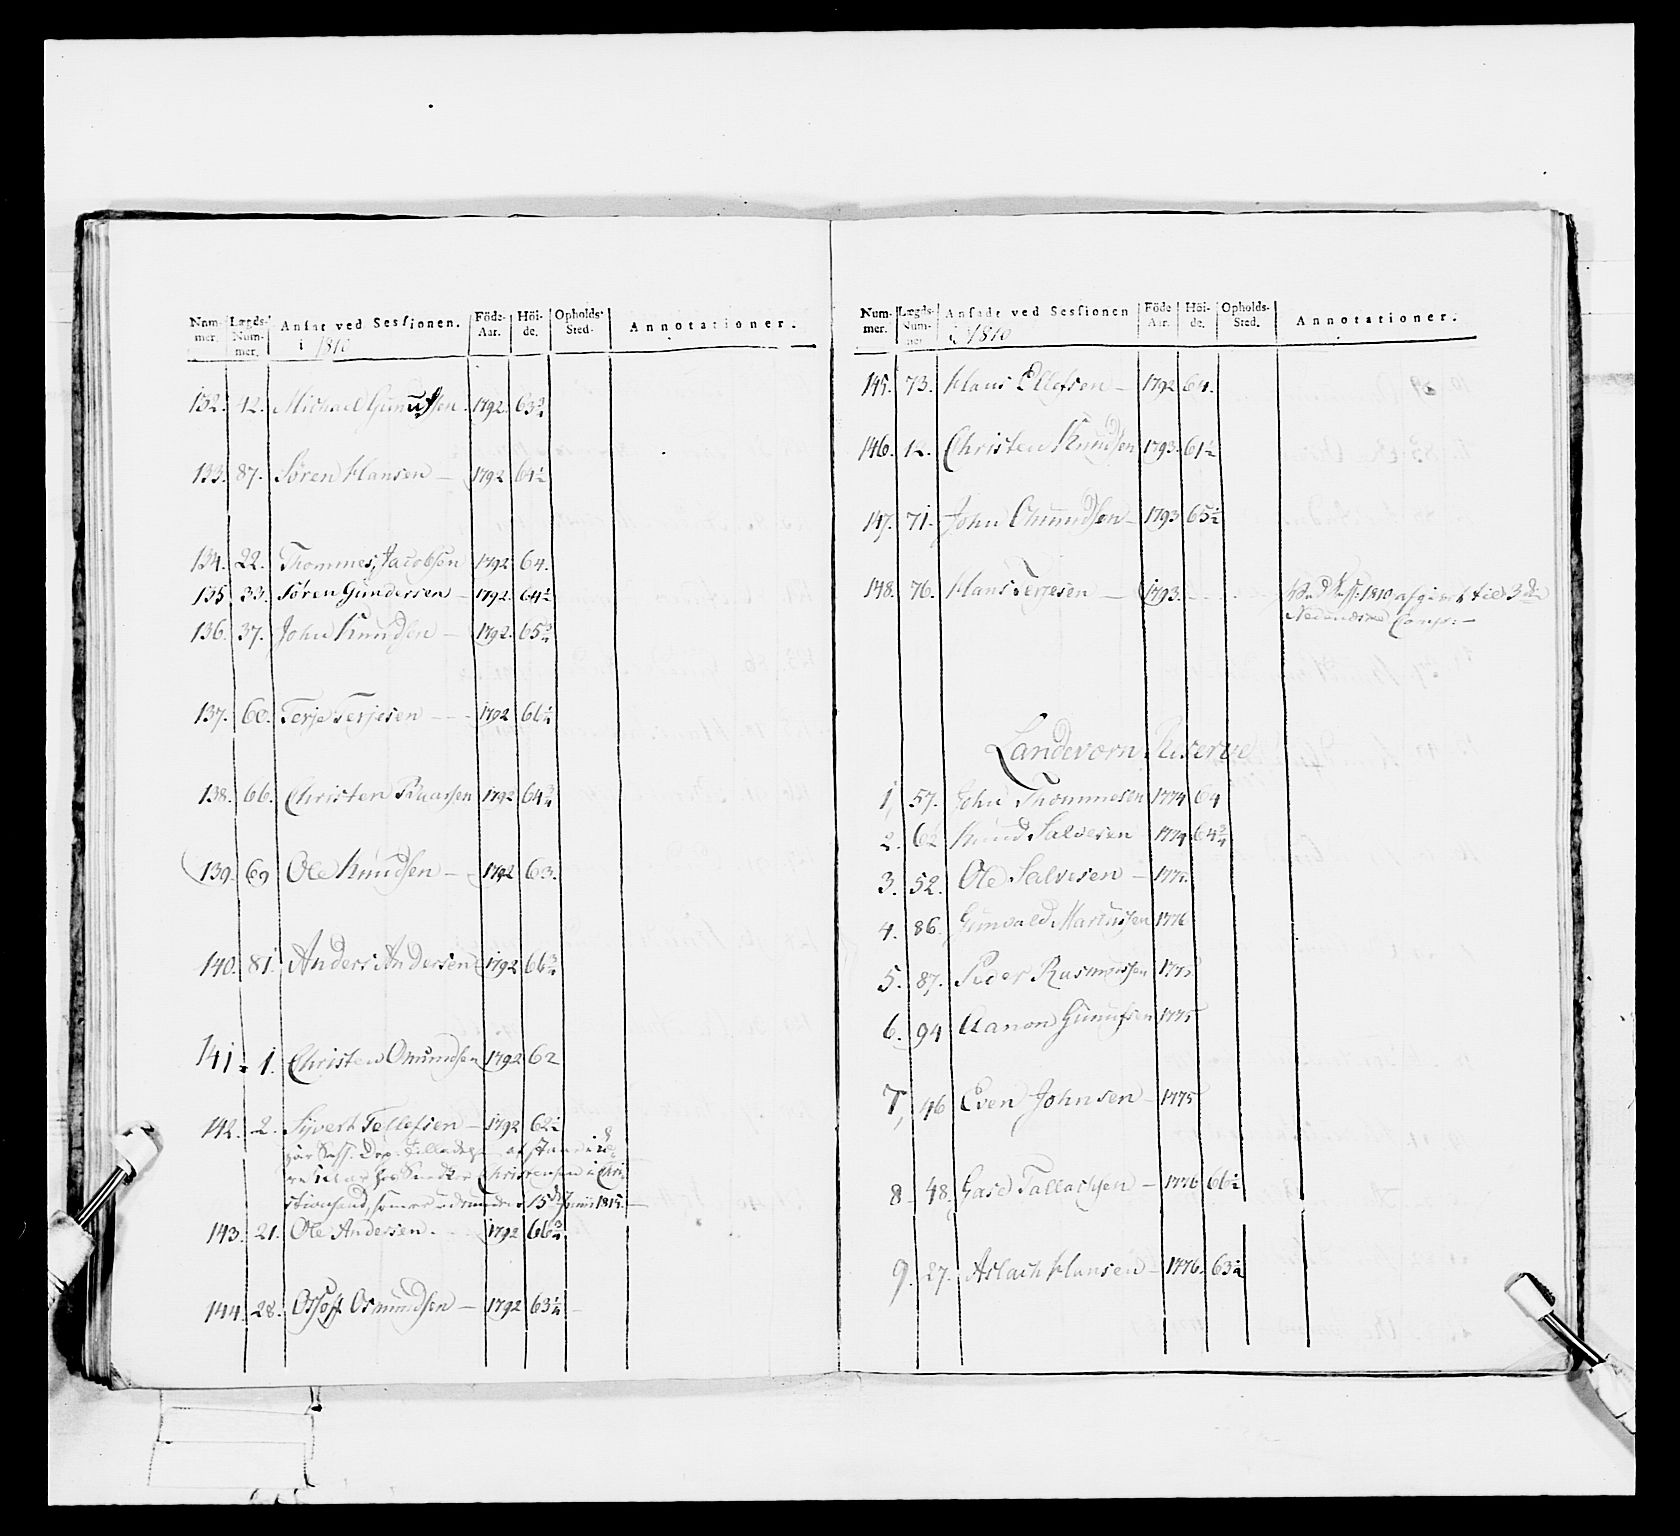 Num- Lægds- Ansat ved Sessionen. Föde- Höi- Opholds- Annotationer.
mer. Num- i 1810 Aar. de. Sted.
mer.
132. 12. Michael Gunufsen. 1792. 63¾
133. 87. Søren Hansen — 1792 64½
134. 22. Thommes Jacobsen 1792 64.
135 33. Søren Gundersen — 1792. 64½
136. 37. John Knudsen — 1792. 65¾
137. 60. Terje Terjesen — 1792 66½
138. 66. Christen Baarsen 1792 64¾
139. 69 Ole Knudsen — 1792 63.
140. 81. Anders Andersen 1792 66¾
141. 1. Christen Omundsen 1792 62
142. 2. Syvert Tellefsen — 1792 62½
Christensen i Chri-
stiansand, som er udrunden 15de Junii 1815.
143. 21. Ole Andersen. 1792 66¾
144. 28. Osuf Osmundsen — 1792 63¼
Num- Lægds- Ansadt ved Sessionen Föde Höi- Opholds- Annotationer.
mer. Num- i 1810 Aar. de. Sted.
mer
145. 73. Hans Ellefsen — 1792 64.
146. 12. Christen Knudsen 1793. 61½
147. 71. John Omundsen — 1793 65½
148. 76. Hans Terjesen — 1793. — Ved Sess. 1810 afgivet til 3die
Nedenæsske Comp: —
Landeværn Reserve
1, 57. John Thommesen 1774 64
2. 62 Knud Salvesen 1774 64¾
3. 52. Ole Salvesen — 1775.
4. 86. Gunvald Marcussen 1776
5. 87. Peder Rasmussen 1775
6. 94 Aanon Gunufsen 1775
7, 46 Even Johnsen — 1775
8. 48. Gard Tallachsen — 1776 66½
9. 27. Aslach Hansen — 1776. 63½